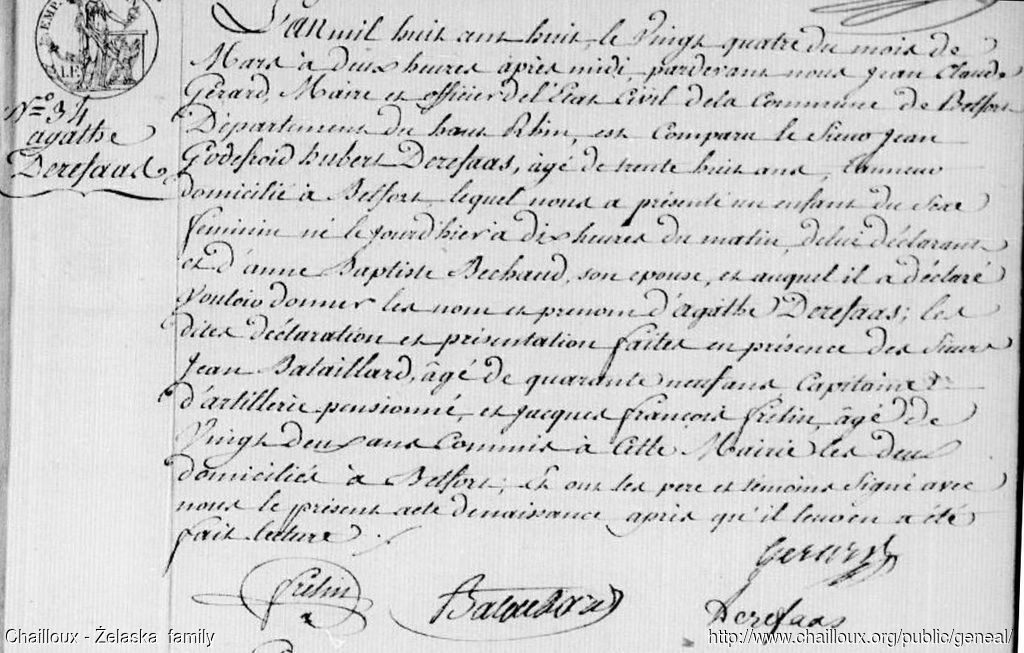 EMP.
N.° 34
agathe
Derefaas
L'an mil huit cent huit, le Vingt quatre du mois de
Mars à deux heures après midi, pardevant nous Jean Claude
Gérard, Maire et officier de l'Etat Civil de la Commune de Belfort
Département du haut Rhin, est Comparu le Sieur Jean
Godefroid hubert Derefaas, âgé de trente huit ans, tanneur
domicilié à Belfort, lequel nous a présenté un enfant du Sexe
féminin né le jourd'hier à dix heures du matin, de lui déclarant
et d'anne Baptiste Bechaud, son epouse, et auquel il a déclaré
Vouloir donner les nom et prenom d'agathe Derefaas; les
dites déclaration et présentation faites en présence des Sieurs
Jean Bataillard, âgé de quarante neuf ans Capitaine
d'artillerie pensionné, et Jacques françois frétin, âgé de
Vingt deux ans Commis à Cette Mairie les deux
domiciliés à Belfort; Et ont les pere et temoins Signé avec
nous le présent acte de naissance, après qu'il leur en a été
fait lecture.
Gerard
fretin
Bataillard
Derefaas
Chailloux - Żelaska family
http://www.chailloux.org/public/geneal/